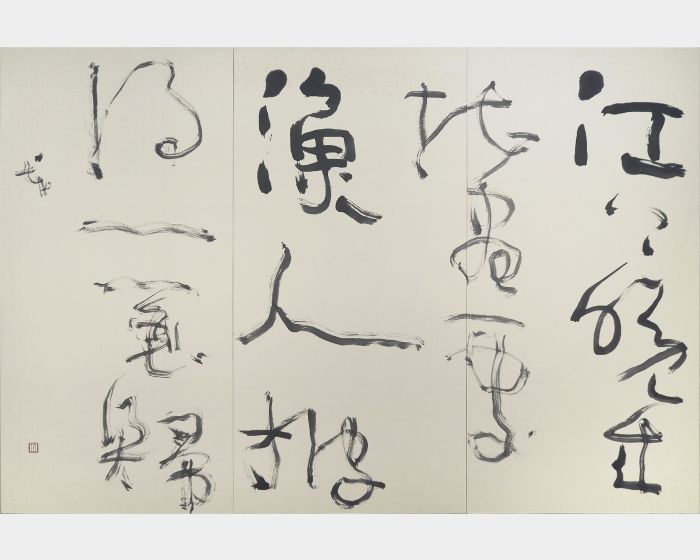 江上晚來
堪畫處
漁人披
得一蓑歸